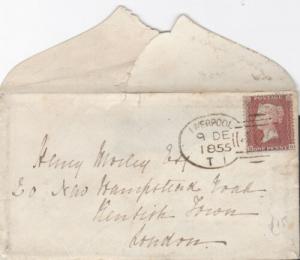 POSTAGE
ONE PENNY
LIVERPOOL
9 DE
1855
T 1
Henry Morley Esq
20 New Hampstead Road
Kentish Town
London.
£15